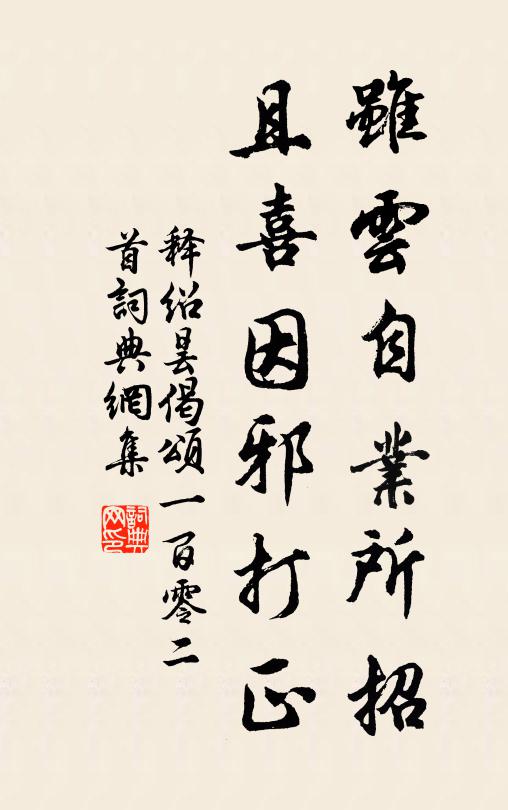 雖雲自業所招
且喜因邪打正
释绍昙偈頌一百零二
首詞典網集
詞典网印